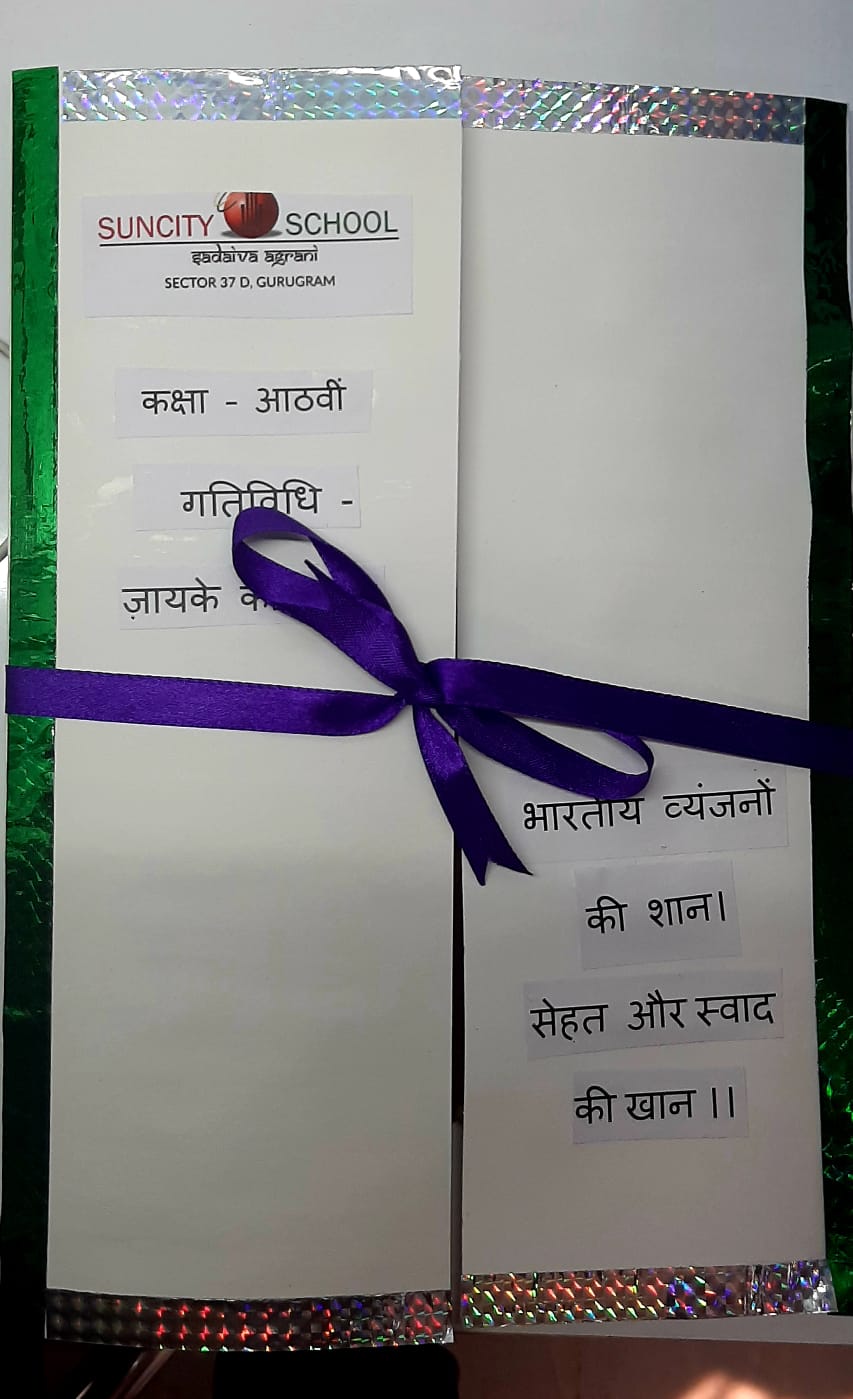 SUNCITY SCHOOL
sadaiva agrani
SECTOR 37 D, GURUGRAM
कक्षा - आठवीं
गतिविधि -
ज़ायके
भारतीय व्यंजनों
की शान।
सेहत और स्वाद
की खान ।।